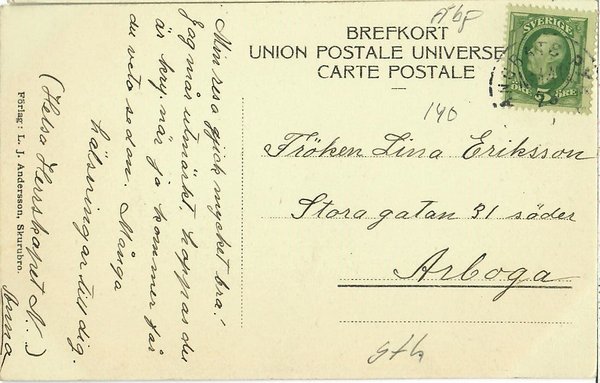 Min resa gick mycket bra!
Jag mår utmärkt, hoppas du
är kry. när ja kommer får
du veta sedan. Många
hälsningar till dig.
(Helsa Herrskapet N..)
Anna
Förlag: L. J. Andersson, Skurubro.
BREFKORT
UNION POSTALE UNIVERSE
CARTE POSTALE
SVERIGE
140
Fröken Lina Eriksson
Stora gatan 31 söder
Arboga